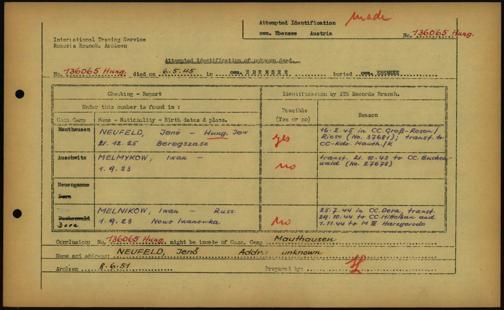 Attempted Identification made
cem. Ebensee Austria
International Tracing Service
Records Branch, Arolsen
No. 136065 Hung.
Attempted identification of unknown dead.
No. 136065 Hung. died on 6.5.45 in cem. EBENSEE buried cem. EBENSEE
Checking - Report
Identification by ITS Records Branch.
Under this number is found in :
Possible (Yes or no)
Reason
Conc. Camp
Name - Nationality - Birth dates & place.
Mauthausen
NEUFELD, Jenő - Hung. Jew
21.12.25 Beregszasz
yes
16.2.45 in CC Groß-Rosen/
Riese (No. 37681); transf. to
CC-Kdo. Mauth./K
Auschwitz
MELMYKOW, Iwan -
1.9.23
no
transf. 21.10.43 to CC Buchen-
wald (No. 27672)
Dora
MELNIKOW, Iwan - Russ.
1.9.23 Nowo Iwanowka
no
25.7.44 in CC Dora, transf.
1.11.44 to M III Harzgerode
Buchenwald
Dora
Conclusion: No. 136065 Hung. might be inmate of Conc. Camp Mauthausen
Name and address: NEUFELD, Jenő Addr.: unknown
Arolsen 8.6.51 Prepared by: